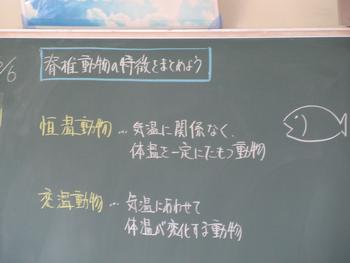 脊椎動物の特徴をまとめよう
恒温動物…気温に関係なく、
体温を一定にたもつ動物
変温動物…気温にあわせて
体温が変化する動物